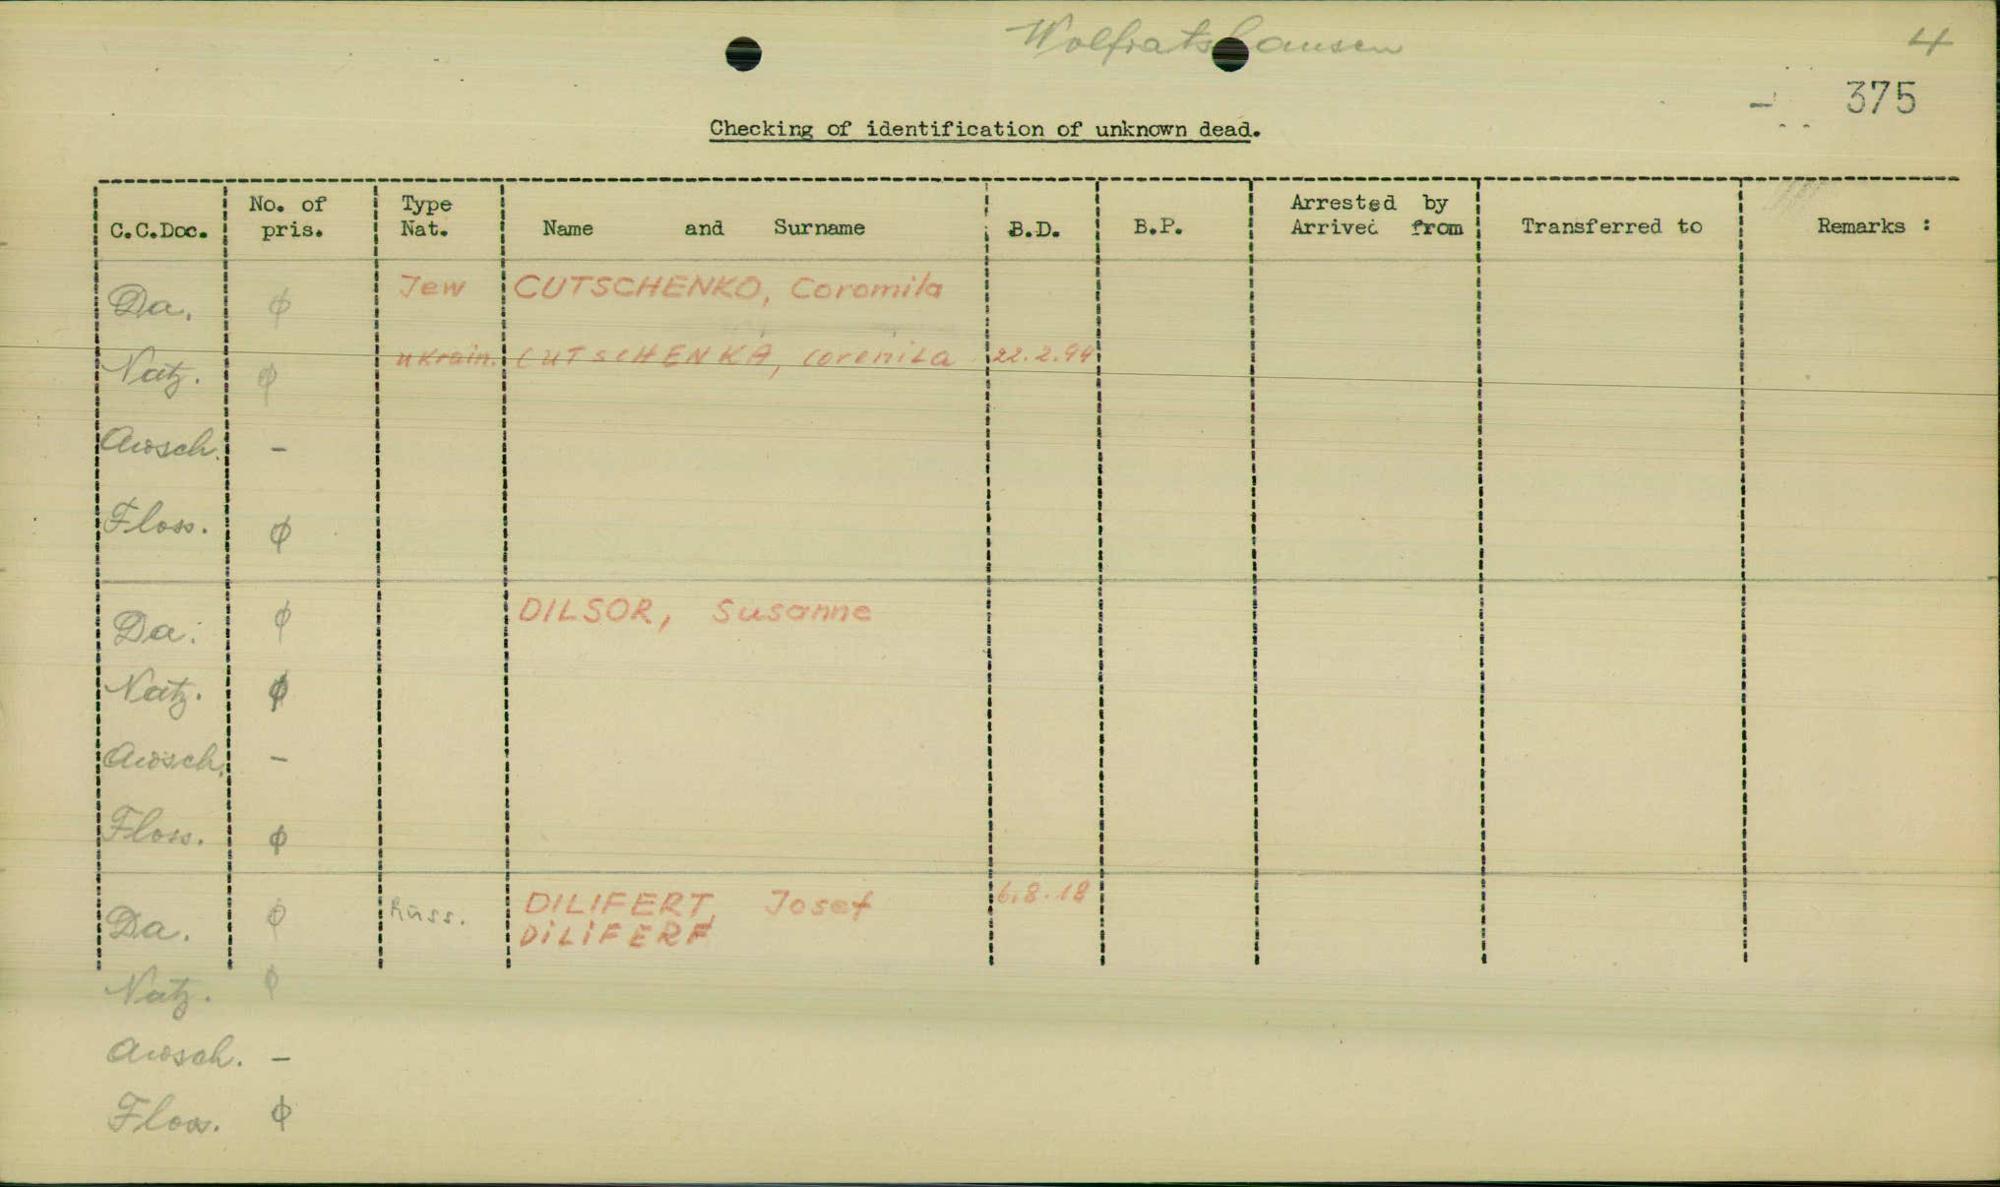 Wolfratshausen 4
- 375
Checking of identification of unknown dead.
C.C.Doc. No. of pris. Type Nat. Name and Surname B.D. B.P. Arrested by Arrived from Transferred to Remarks :
Da. ϕ Jew CUTSCHENKO, Coromila
Natz. ϕ Ukrain. CUTSCHENKA, Corenila 22.2.94
Ausch. -
Floss. ϕ
Da. ϕ DILSOR, Susanne
Natz. ϕ
Ausch. -
Floss. ϕ
Da. ϕ Russ. DILIFERT, Josef 6.8.18
DiLiFERF
Natz. ϕ
Ausch. -
Floss. ϕ